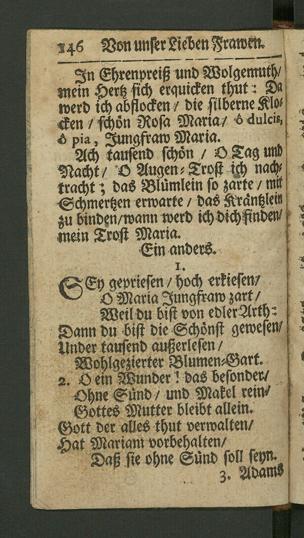 146 Von unser Lieben Frawen.
In Ehrenpreiß und Wolgemuth/
mein Hertz sich erquicken thut: Da
werd ich abstocken/ die silberne Klo-
cken/ schön Rosa Maria/ ô dulcis,
ô pia, Jungfraw Maria.
Ach tausend schön / O Tag und
Nacht/ O Augen-Trost ich nach-
tracht; das Blümlein so zarte/ mit
Schmertzen erwarte/ das Kräntzlein
zu binden/wann werd ich dich finden/
mein Trost Maria.
Ein anders.
1.
SEy gepriesen/ hoch erkiesen/
O Maria Jungfraw zart/
Weil du bist von edler Arth:
Dann du bist die Schönst gewesen/
Under tausend außerlesen/
Wohlgezierter Blumen-Gart.
2. O ein Wunder! das besonder/
Ohne Sünd/ und Makel rein/
Gottes Mutter bleibt allein.
Gott der alles thut verwalten/
Hat Mariam vorbehalten/
Daß sie ohne Sünd soll seyn.
3. Adams